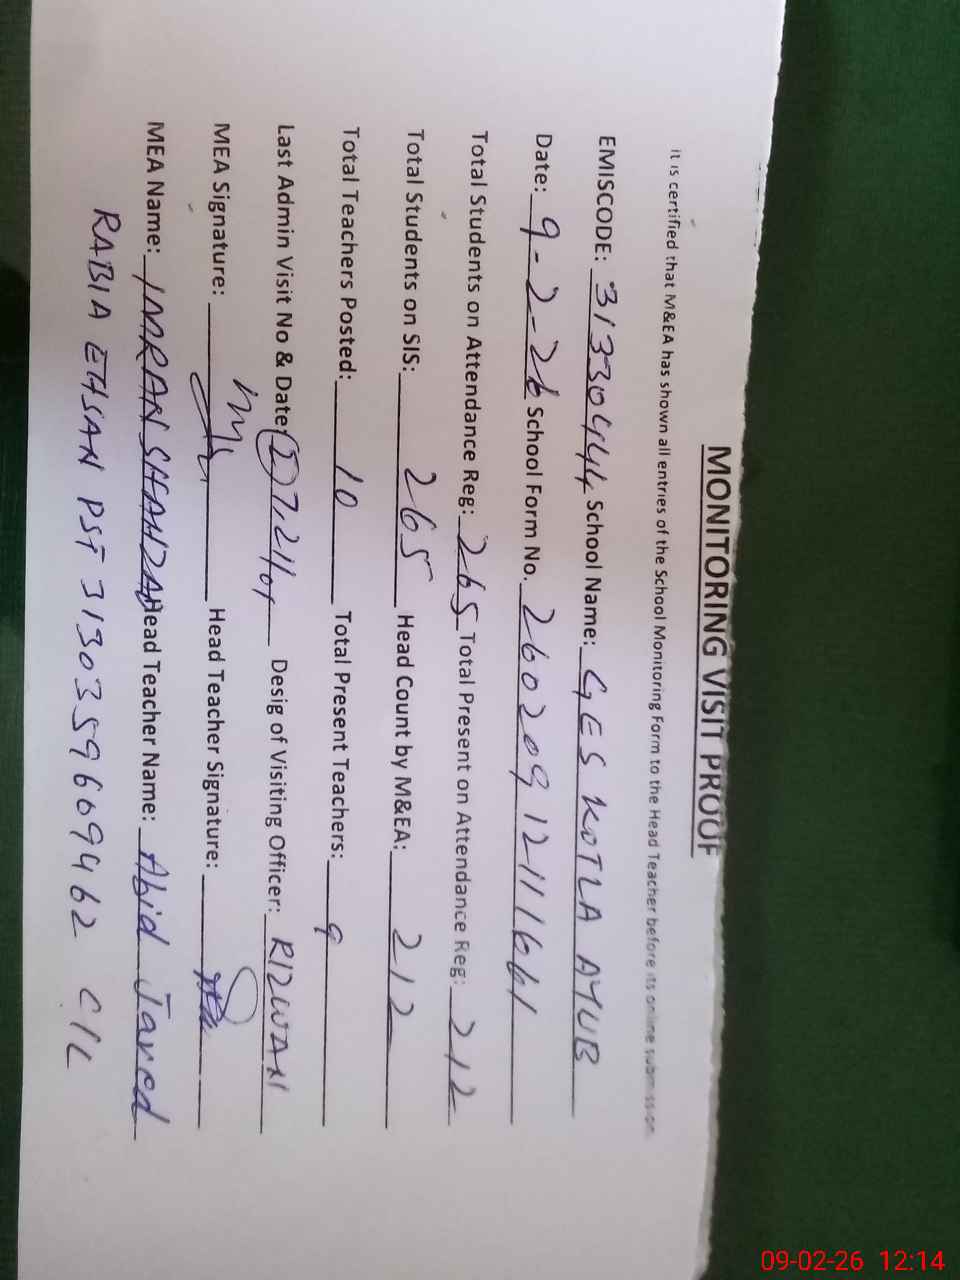 MONITORING VISIT PROOF
it is certified that M&EA has shown all entries of the School Monitoring Form to the Head Teacher before its online submission.
EMISCODE: 31330444 School Name: GES KOTLA AYUB
Date: 9-2-26 School Form No. 2602091211661
Total Students on Attendance Reg: 265 Total Present on Attendance Reg: 212
Total Students on SIS: 265 Head Count by M&EA: 212
Total Teachers Posted: 10 Total Present Teachers: 9
Last Admin Visit No & Date: Desig of Visiting Officer: RIZWAN
MEA Signature: Head Teacher Signature:
MEA Name: IMRAN SHAHZAD Head Teacher Name: Abid Javed
RABIA EHSAN PST 3130359669462 C/L
09-02-26 12:14